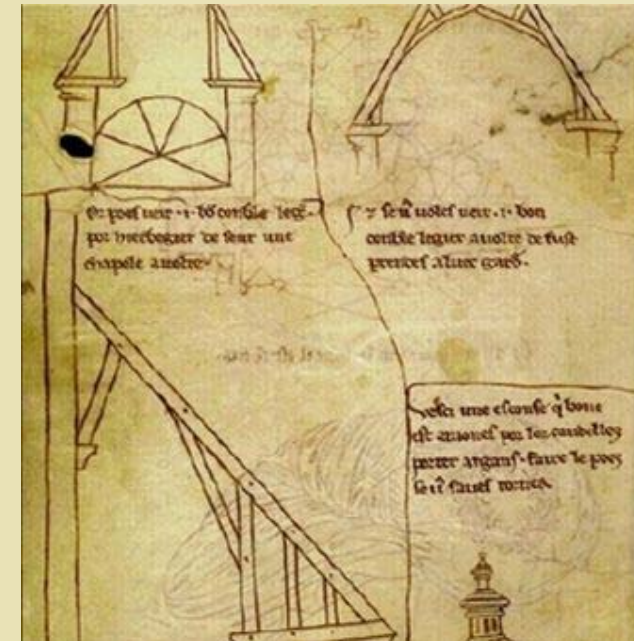 Or poes veir .i. bō conble legi-
por herbegier de seur une
chapele a volte.
⁊ se vꝰ volés veir .i. bon
conble legier a volte de fust
prendés a luec gard.
Vesci une esconse q̄ bone
est a moines por lor candelles
porter argans. faire le poes
se vꝰ savés torner.